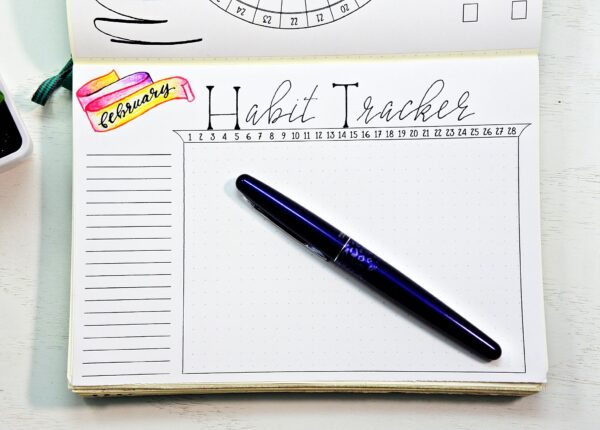 February
Habit Tracker
1 2 3 4 5 6 7 8 9 10 11 12 13 14 15 16 17 18 19 20 21 22 23 24 25 26 27 28